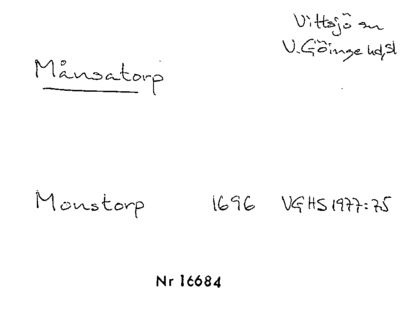 Vittsjö sn
V. Göinge hd, sk
Månsatorp
Monstorp 1696 VGHS 1977:75
Nr 16684